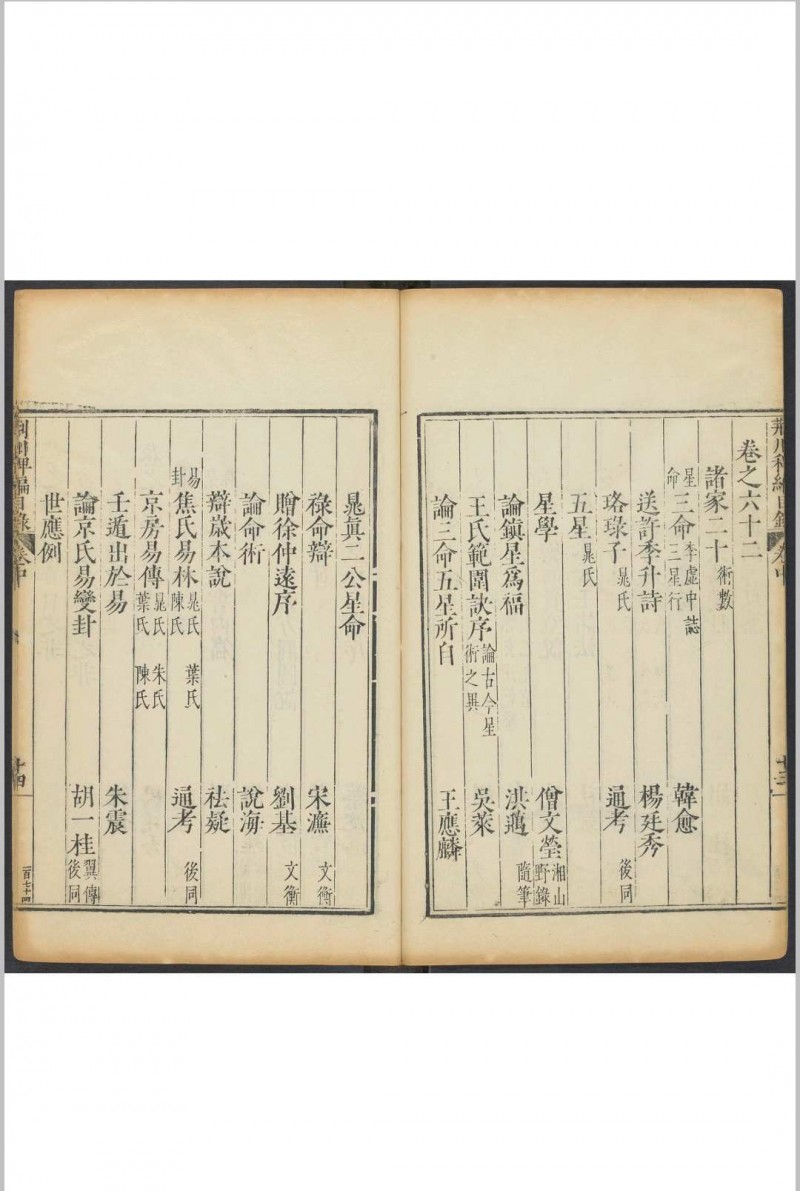 荆川稗編目錄 卷中 十三
卷之六十二
諸家二十 術數
星命 三命 李虛中誌 三星行 韓愈
送許季升詩 楊廷秀
珞琭子 晁氏 通考 後同
五星 晁氏
星學 僧文瑩 湘山野錄
論鎮星爲福 洪邁 隨筆
王氏範圍訣序 論古今星術之異 吳萊
論三命五星所自 王應麟
晁眞二公星命
祿命辯 宋濂 文衡
贈徐仲遠序 劉基 文衡
論命術 說海
辯歲本說 祛疑
易卦 焦氏易林 晁氏 陳氏 葉氏 通考 後同
京房易傳 晁氏 葉氏 朱氏 陳氏
壬遁出於易 朱震
論京氏易變卦 胡一桂 翼傳 後同
世應例
荆川稗編目錄 卷中 十四 一百七十四